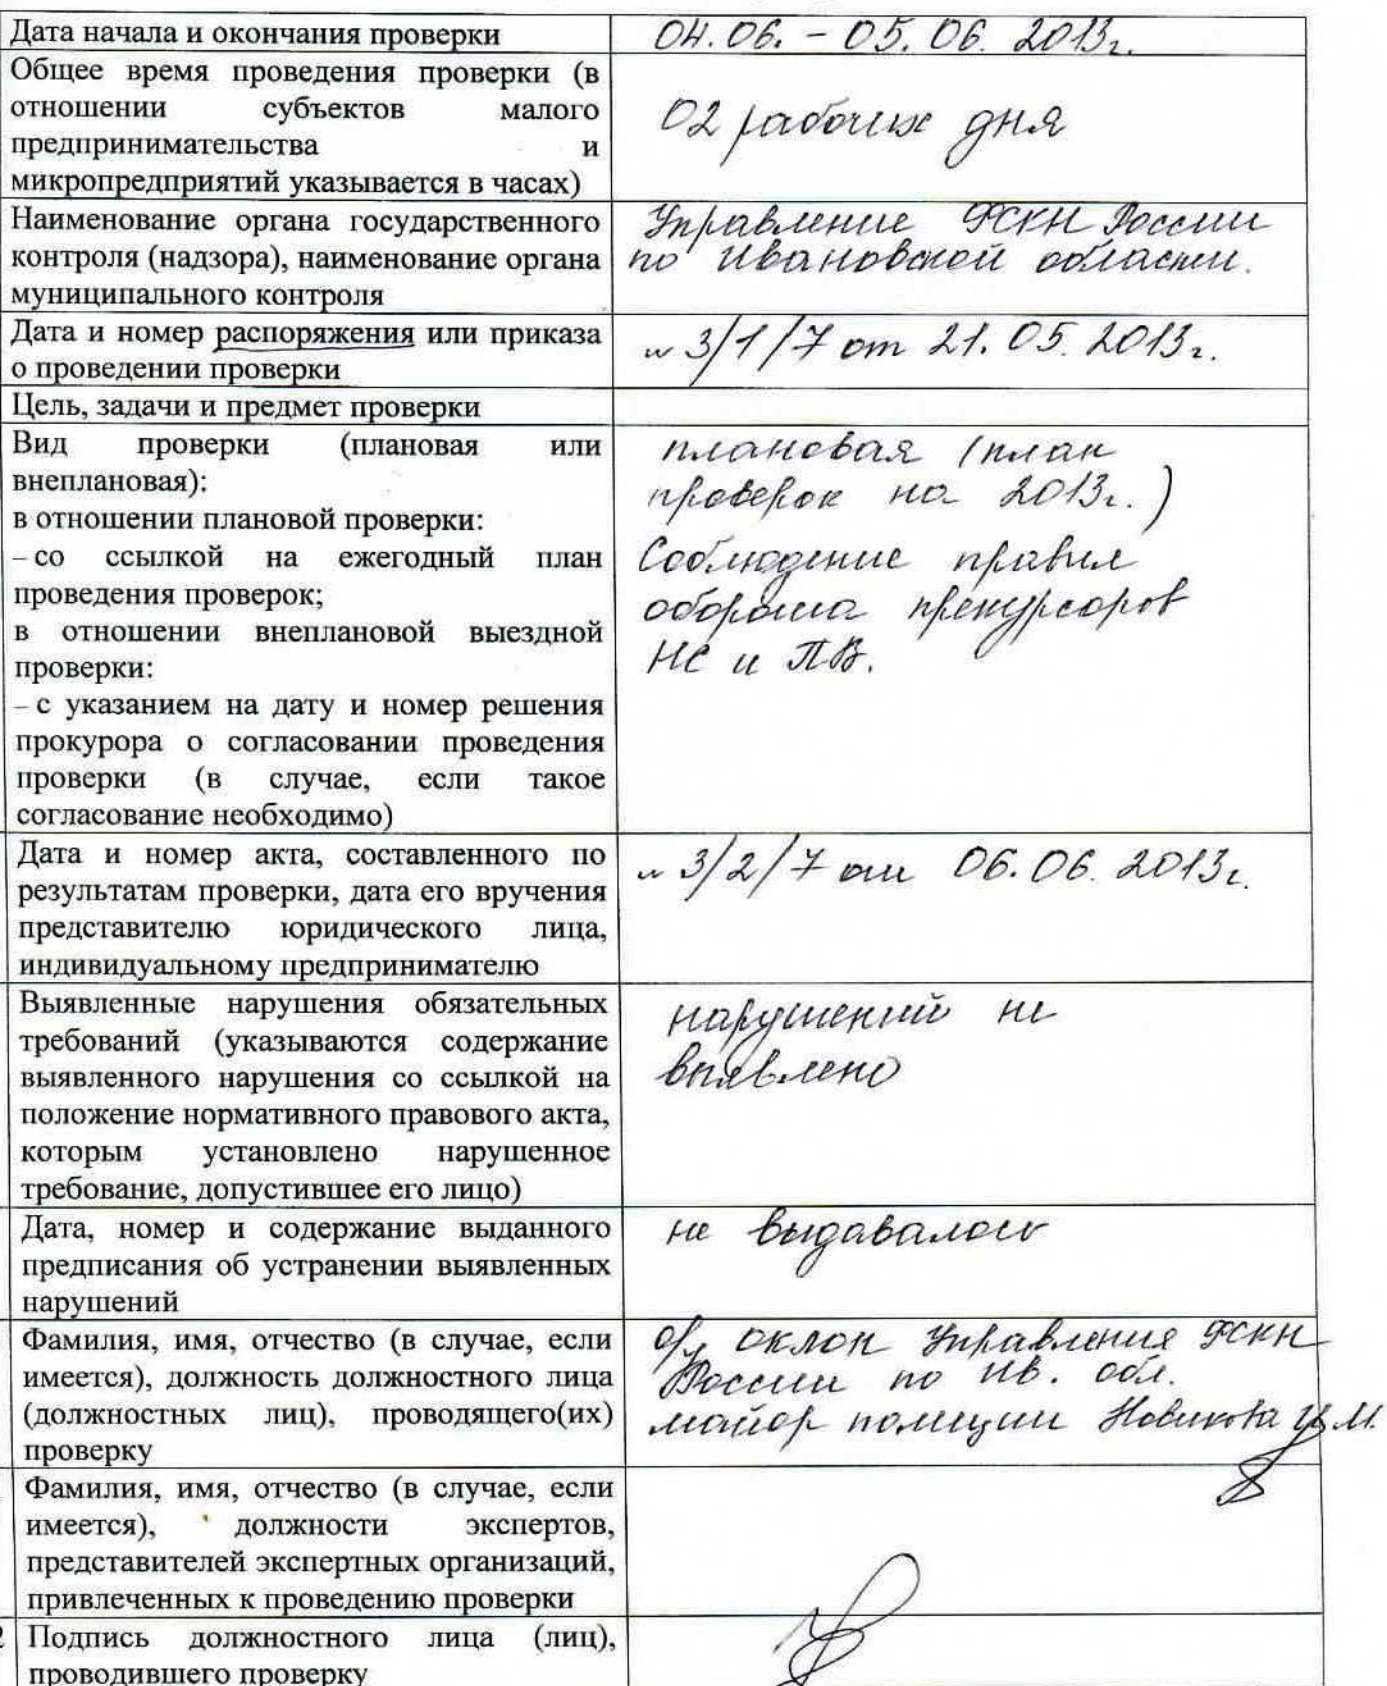 Дата начала и окончания проверки
04.06. - 05.06. 2013г.
Общее время проведения проверки (в
отношении субъектов малого
предпринимательства и
микропредприятий указывается в часах)
02 рабочих дня
Наименование органа государственного
контроля (надзора), наименование органа
муниципального контроля
Управление ФСКН России
по Ивановской области.
Дата и номер распоряжения или приказа
о проведении проверки
№ 3/1/7 от 21.05.2013г.
Цель, задачи и предмет проверки
Вид проверки (плановая или
внеплановая):
в отношении плановой проверки:
– со ссылкой на ежегодный план
проведения проверок;
в отношении внеплановой выездной
проверки:
– с указанием на дату и номер решения
прокурора о согласовании проведения
проверки (в случае, если такое
согласование необходимо)
плановая (план
проверок на 2013г.)
Соблюдение правил
оборота прекурсоров
НС и ПВ.
Дата и номер акта, составленного по
результатам проверки, дата его вручения
представителю юридического лица,
индивидуальному предпринимателю
№ 3/2/7 от 06.06.2013г.
Выявленные нарушения обязательных
требований (указываются содержание
выявленного нарушения со ссылкой на
положение нормативного правового акта,
которым установлено нарушенное
требование, допустившее его лицо)
нарушений не
выявлено
Дата, номер и содержание выданного
предписания об устранении выявленных
нарушений
не выдавалось
Фамилия, имя, отчество (в случае, если
имеется), должность должностного лица
(должностных лиц), проводящего(их)
проверку
о/у ОКЛОН Управления ФСКН
России по Ив. обл.
майор полиции Новикова И.М.
Фамилия, имя, отчество (в случае, если
имеется), должности экспертов,
представителей экспертных организаций,
привлеченных к проведению проверки
2 Подпись должностного лица (лиц),
проводившего проверку